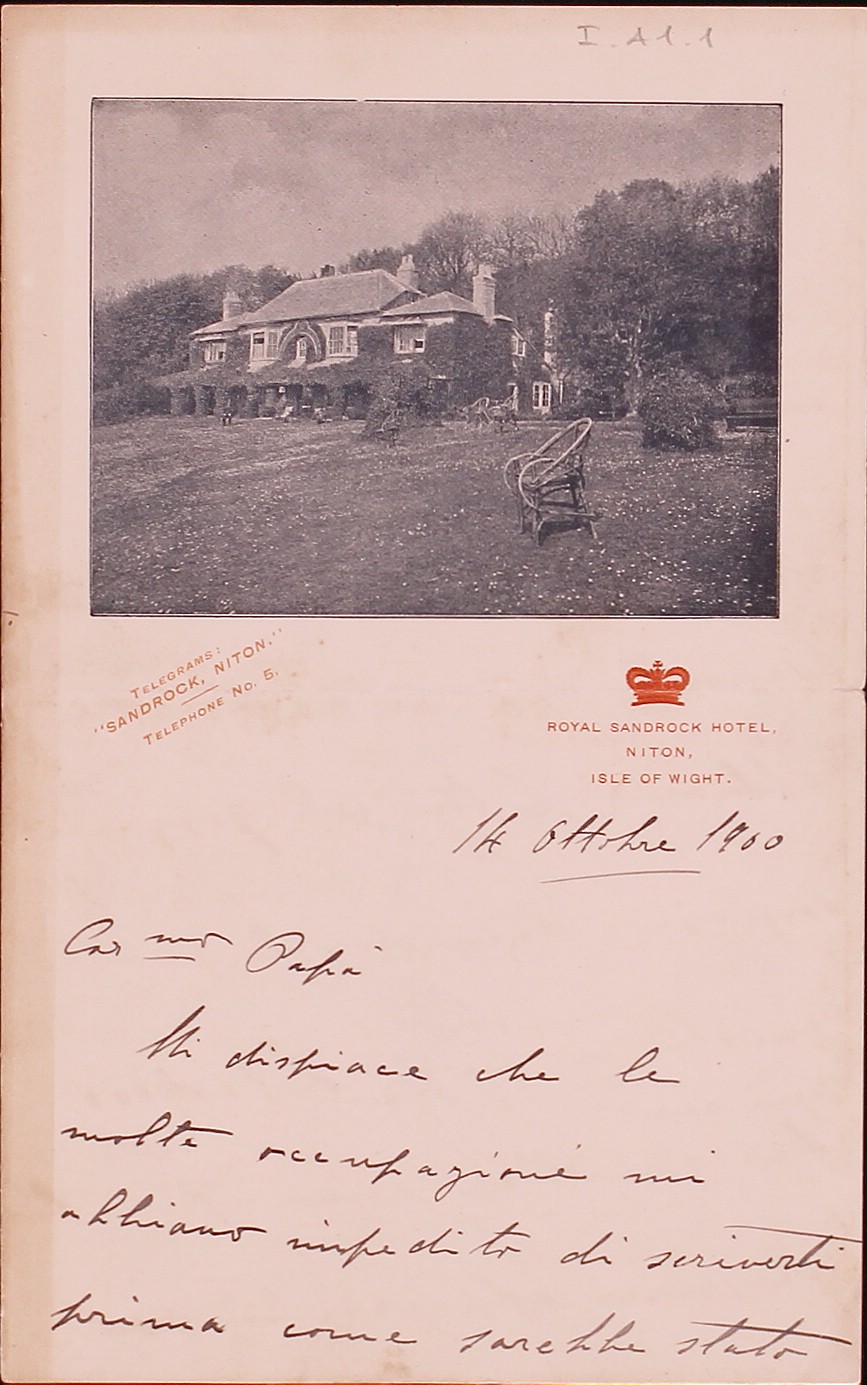 I.A1.1
TELEGRAMS:
"SANDROCK, NITON."
TELEPHONE NO. 5.
ROYAL SANDROCK HOTEL,
NITON,
ISLE OF WIGHT.
14 Ottobre 1900
Car mo Papà
Mi dispiace che le
molte occupazioni mi
abbiano impedito di scriverti
prima come sarebbe stato